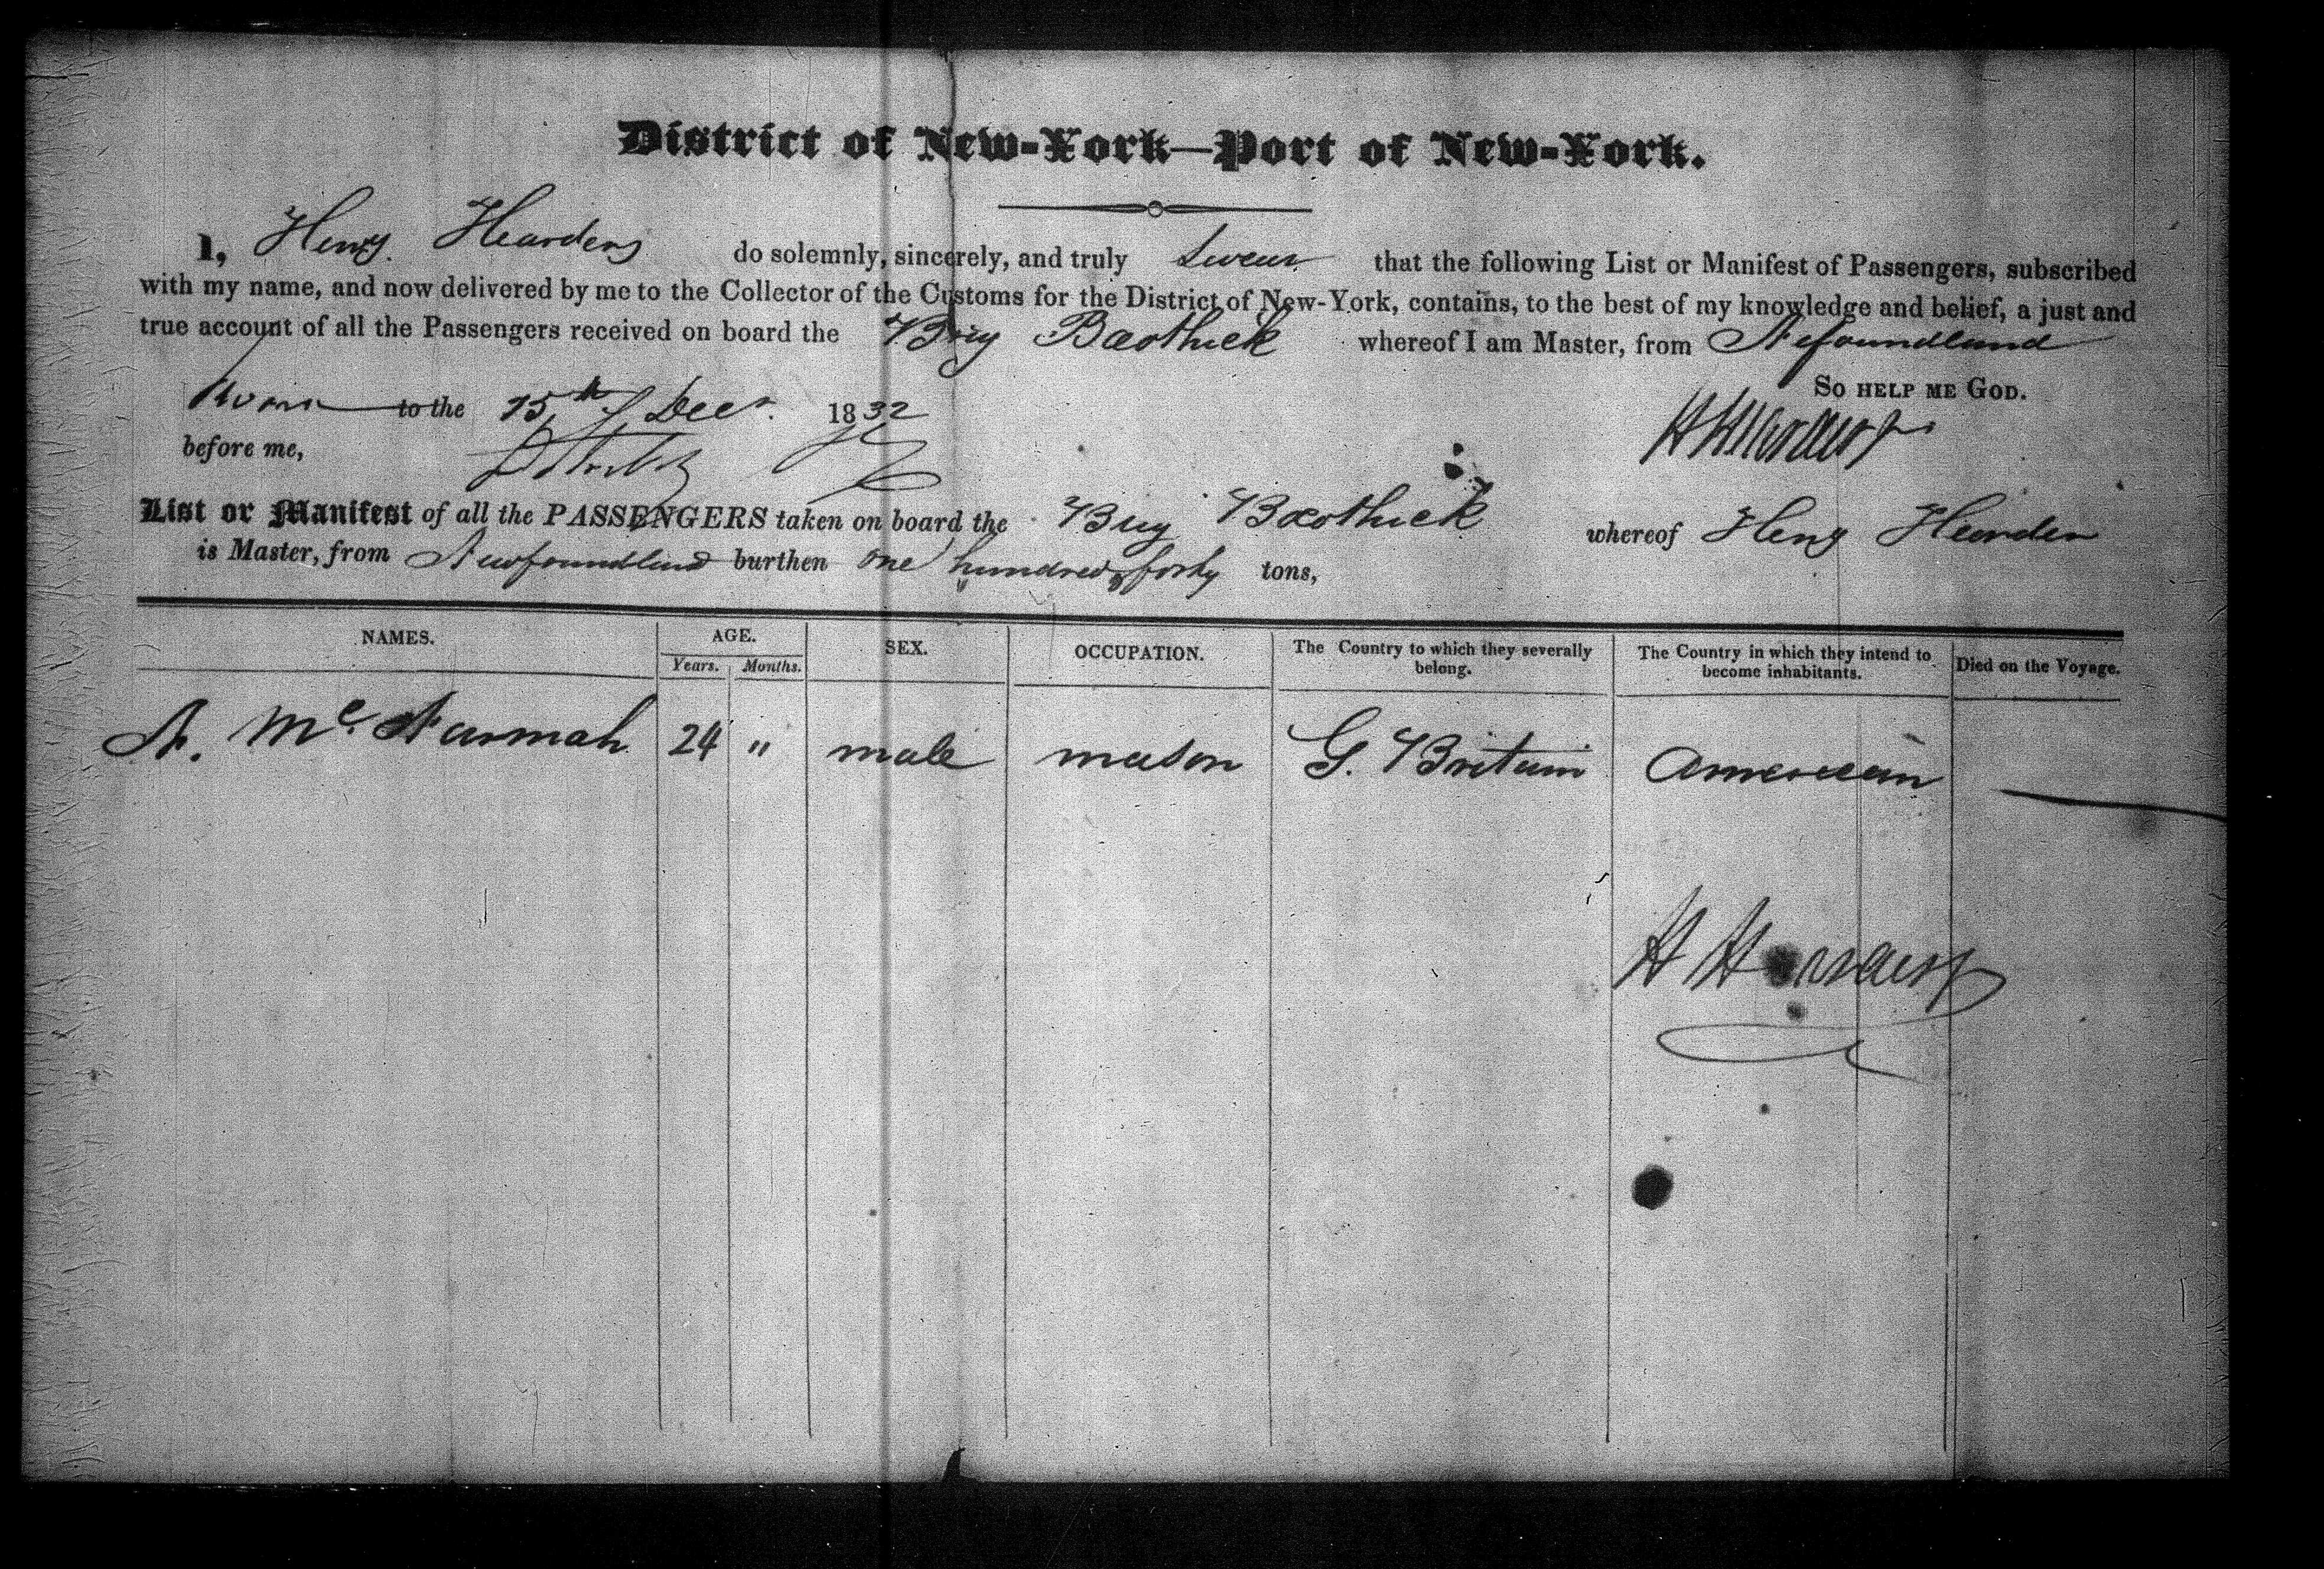 District of New-York—Port of New-York.
I, Henry Hearders do solemnly, sincerely, and truly Swear that the following List or Manifest of Passengers, subscribed
with my name, and now delivered by me to the Collector of the Customs for the District of New-York, contains, to the best of my knowledge and belief, a just and
true account of all the Passengers received on board the Brig Bœothick whereof I am Master, from Nefoundland
So help me God.
to the 15th of Decr. 1832
before me,
List or Manifest of all the PASSENGERS taken on board the Brig Bœothick whereof Heny Hearder
is Master, from Newfoundland burthen one hundred & forty tons,
NAMES. AGE. SEX. OCCUPATION. The Country to which they severally belong. The Country in which they intend to become inhabitants. Died on the Voyage.
Years. Months.
A. Mc. 24 " male mason G. Britain American